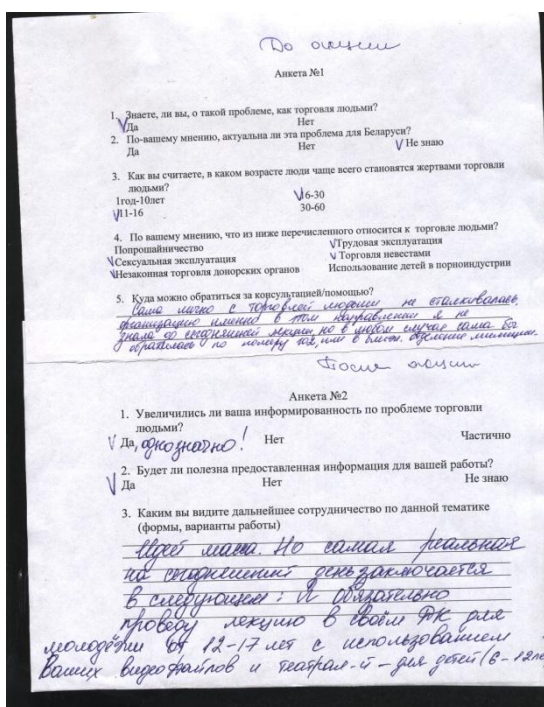 До акции
Анкета №1
1. Знаете, ли вы, о такой проблеме, как торговля людьми?
Да Нет
2. По-вашему мнению, актуальна ли эта проблема для Беларуси?
Да Нет Не знаю
3. Как вы считаете, в каком возрасте люди чаще всего становятся жертвами торговли
людьми?
1год-10лет 16-30
11-16 30-60
4. По вашему мнению, что из ниже перечисленного относится к торговле людьми?
Попрошайничество Трудовая эксплуатация
Сексуальная эксплуатация Торговля невестами
Незаконная торговля донорских органов Использование детей в порноиндустрии
5. Куда можно обратиться за консультацией/помощью?
Сама лично с торговлей людьми не сталкивалась,
организацию именно в том направлении я не
знала до сегодняшней лекции, но в любом случае сама бы
обратилась по номеру 102, или в ближ. отделение милиции.
После акции
Анкета №2
1. Увеличились ли ваша информированность по проблеме торговли
людьми?
Да, однозначно! Нет Частично
2. Будет ли полезна предоставленная информация для вашей работы?
Да Нет Не знаю
3. Каким вы видите дальнейшее сотрудничество по данной тематике
(формы, варианты работы)
Идей масса. Но самая реальная
на сегодняшний день заключается
в следующем: Я обязательно
проведу лекцию в своём ДК для
молодёжи от 12-17 лет с использованием
Ваших видеофайлов и театрал-й - для детей (6-12ле